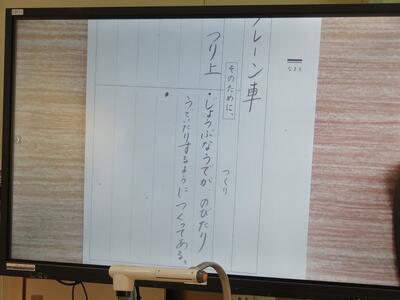 なまえ
クレーン車
つり上
そのために、
つくり
・じょうぶなうでが、のびたり
うごいたりするように つくってある。
・